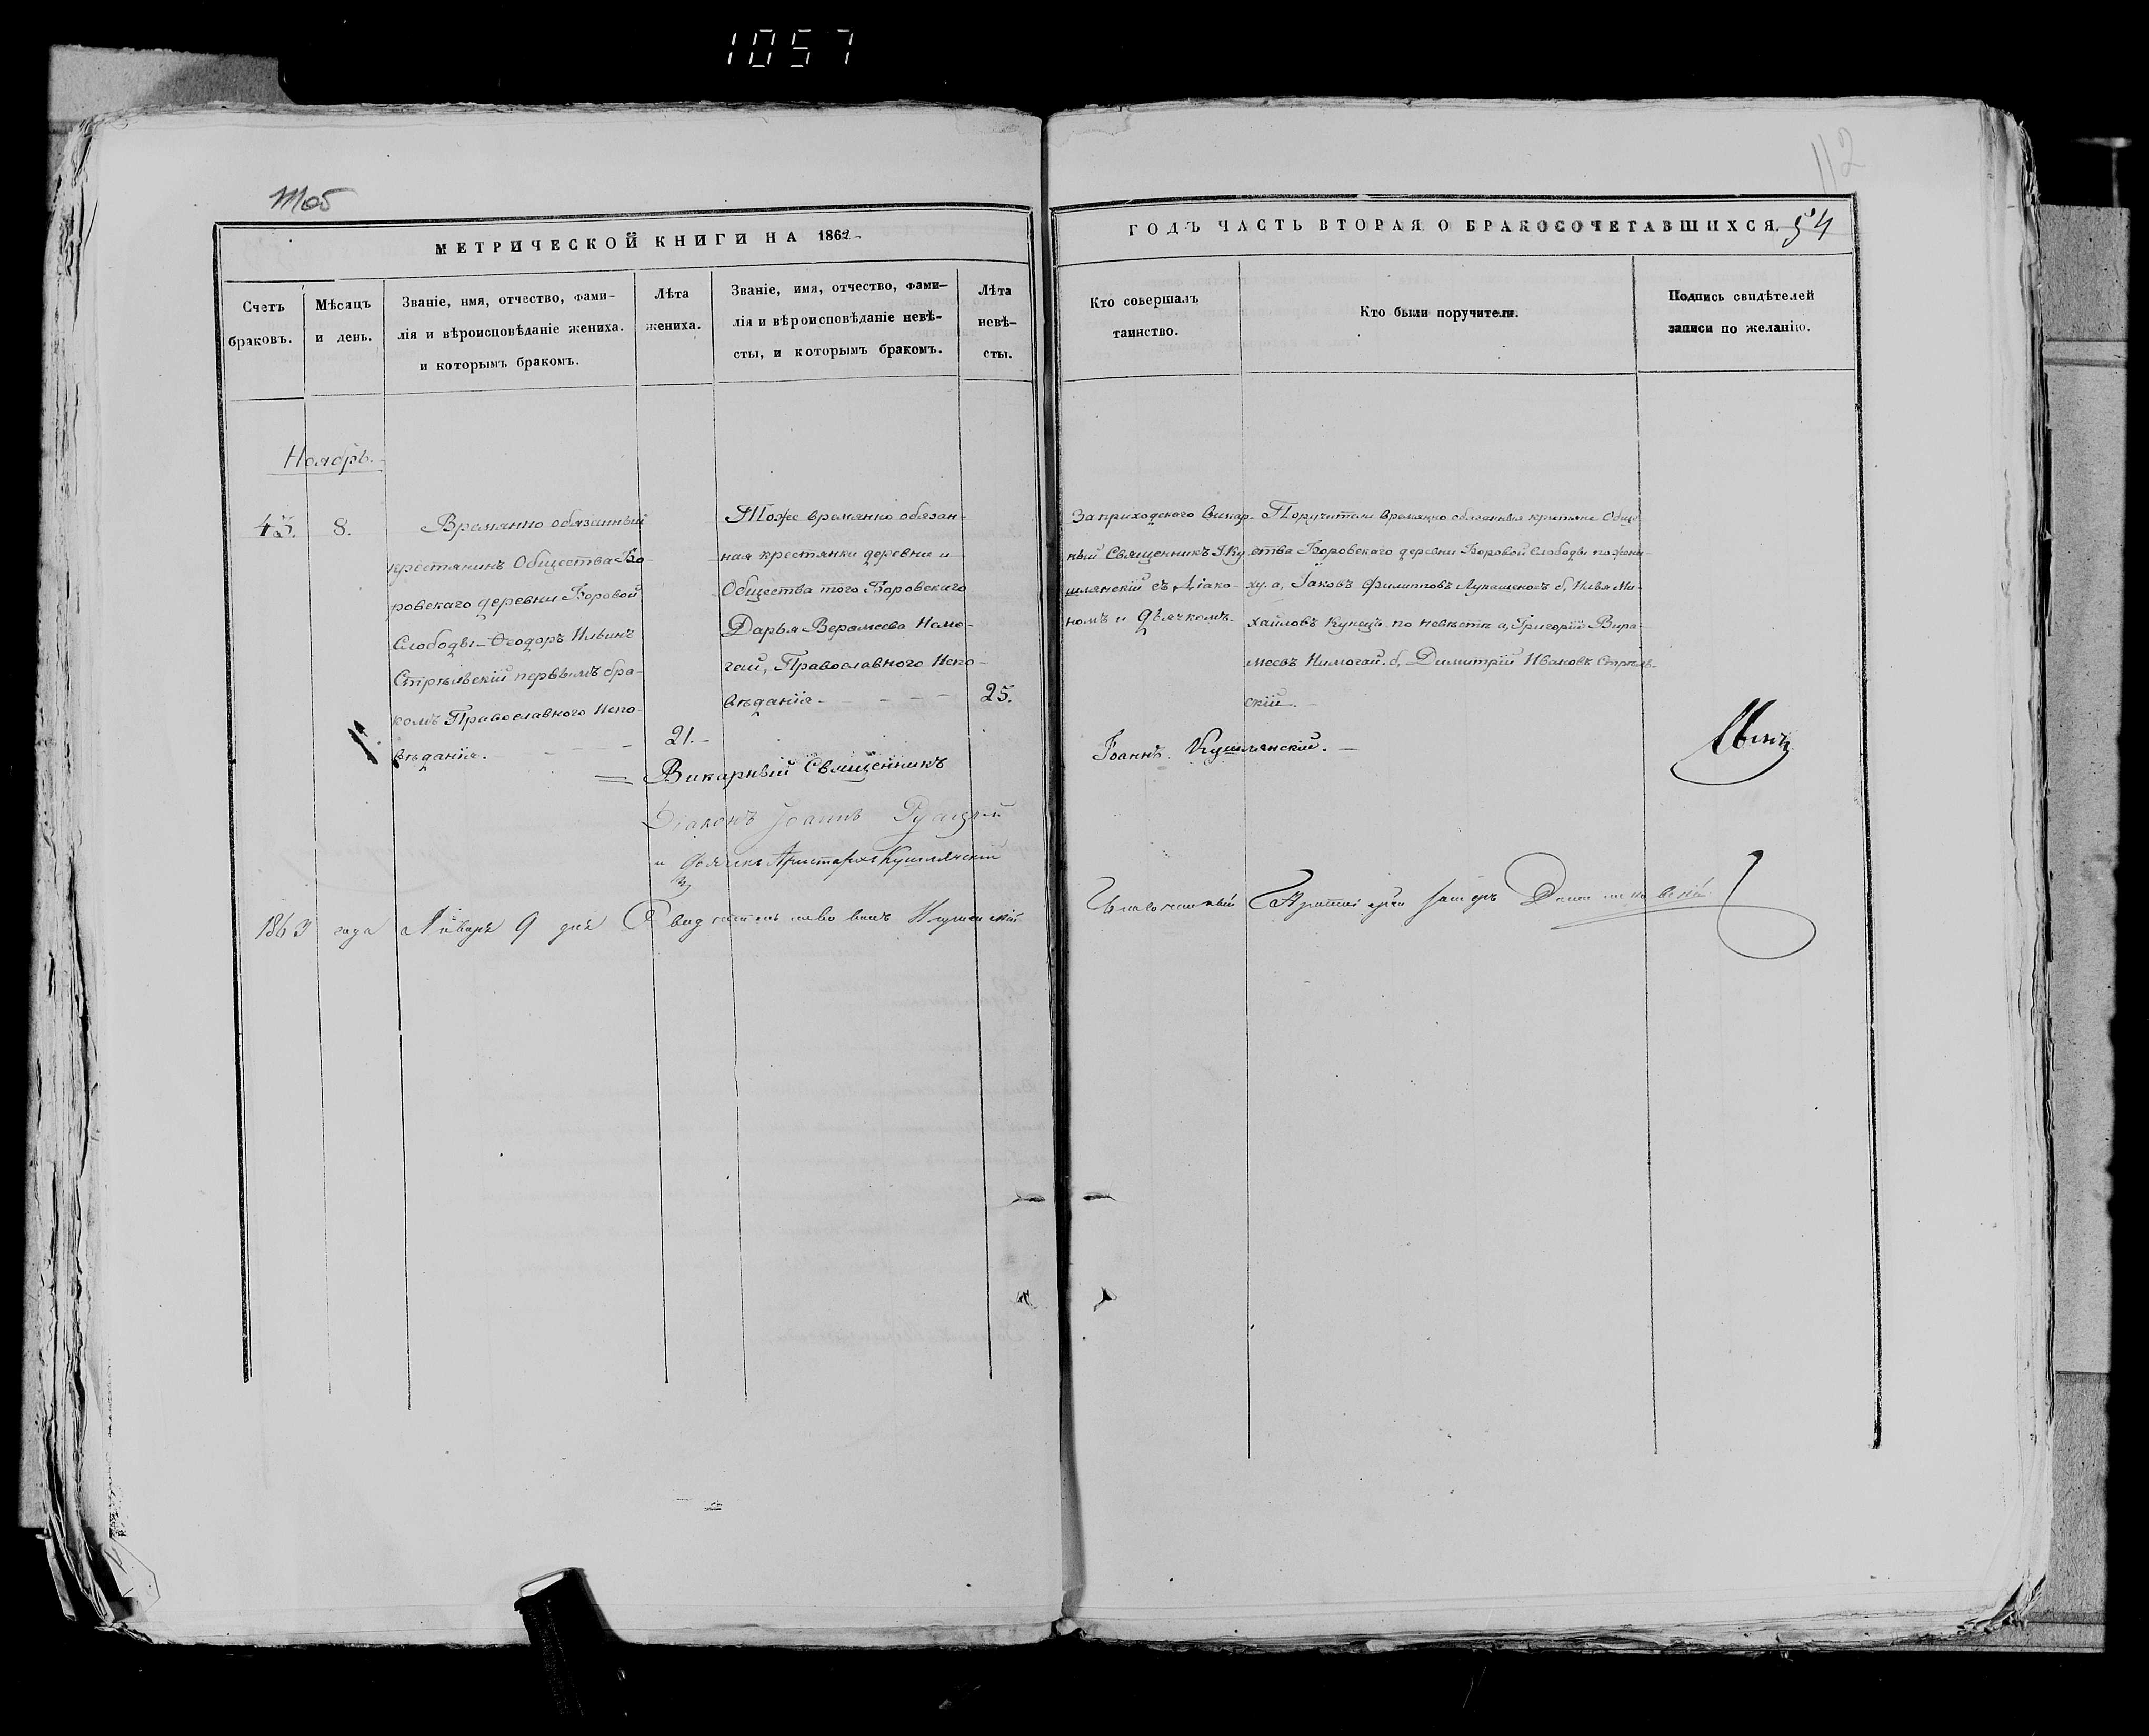 1057
112
МЕТРИЧЕСКОЙ КНИГИ НА 1862
ГОДЪ ЧАСТЬ ВТОРАЯ О БРАКОСОЧЕТАВШИХСЯ. 54
Счетъ
браковъ.
Мѣсяцъ
и день.
Званіе, имя, отчество, фами-
лія и вѣроисповѣданіе жениха.
и которымъ бракомъ.
Лѣта
жениха.
Званіе, имя, отчество, фами-
лія и вѣроисповѣданіе невѣ-
сты, и которымъ бракомъ.
Лѣта
невѣ-
сты.
Кто совершалъ
таинство.
Кто были поручители.
Подпись свидѣтелей
записи по желанію.
Ноябрь.
45. 8.
Времянно обязанный
крестянинъ Общества Бо-
ровскаго деревни Боровой
Слободы Ѳеодоръ Ильинъ
Стрѣльскій первымъ бра-
комъ Православного Испо-
вѣданія.
21.
Тоже времянно обязан-
ная крестянка деревни и
Общества того Боровскаго
Дарья Верамеева Немо-
гай, Православного Испо-
вѣданія
25.
За приходского Викар-
ный Священникъ І. Ку-
шлянскій съ Діако-
номъ и Дьячкомъ.
Поручители времянно обязанныя крестяне Обще
ства Боровскаго деревни Боровой Слободы по жени-
ху. а, Іаковъ Филиповъ Лукашенокъ б, Илья Ми-
хайловъ Купецъ по невѣстѣ а, Григорій Вира-
меевъ Нимогай. б, Димитрій Ивановъ Стрѣль-
скій.
Викарный Священникъ Іоаннъ Кушлянскій.
Діаконъ Іоаннъ
и Дьячекъ Аристархъ Кушлянскій
1863 года Января 9 дня